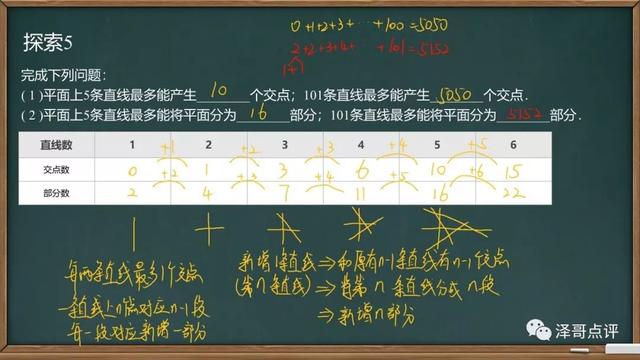 0+1+2+3+ … +100=5050
探索5
2+2+3+4+ … +101=5152
1+1
完成下列问题：
(1)平面上5条直线最多能产生 10 个交点；101条直线最多能产生 5050 个交点．
(2)平面上5条直线最多能将平面分为 16 部分；101条直线最多能将平面分为 5152 部分．
直线数 1 2 3 4 5 6
+1 +2 +3 +4 +5
交点数 0 1 3 6 10 15
+2 +3 +4 +5 +6
部分数 2 4 7 11 16 22
每两条直线最多1个交点
一条直线上n个点对应n-1段
每一段对应新增一部分
新增1条直线⇒和原有n-1条直线有n-1个交点
(第n条直线)⇒将第n条直线分成n段
⇒新增n部分
泽哥点评